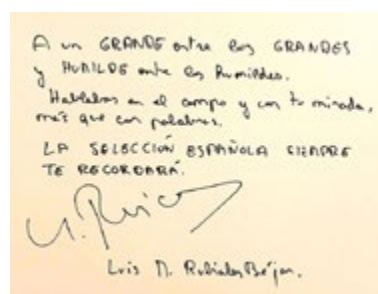 A un GRANDE entre los GRANDES
y HUMILDE entre los humildes.
Hablabas en el campo y con tu mirada,
más que con palabras.
LA SELECCIÓN ESPAÑOLA SIEMPRE
TE RECORDARÁ.
Luis M. Rubiales Béjar.